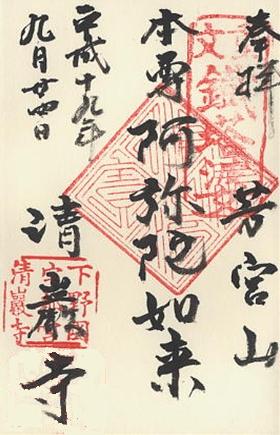 奉拝
芳宮山
本尊 阿弥陀如来
平成十九年
九月廿四日
清巖寺
下野国
清巖寺